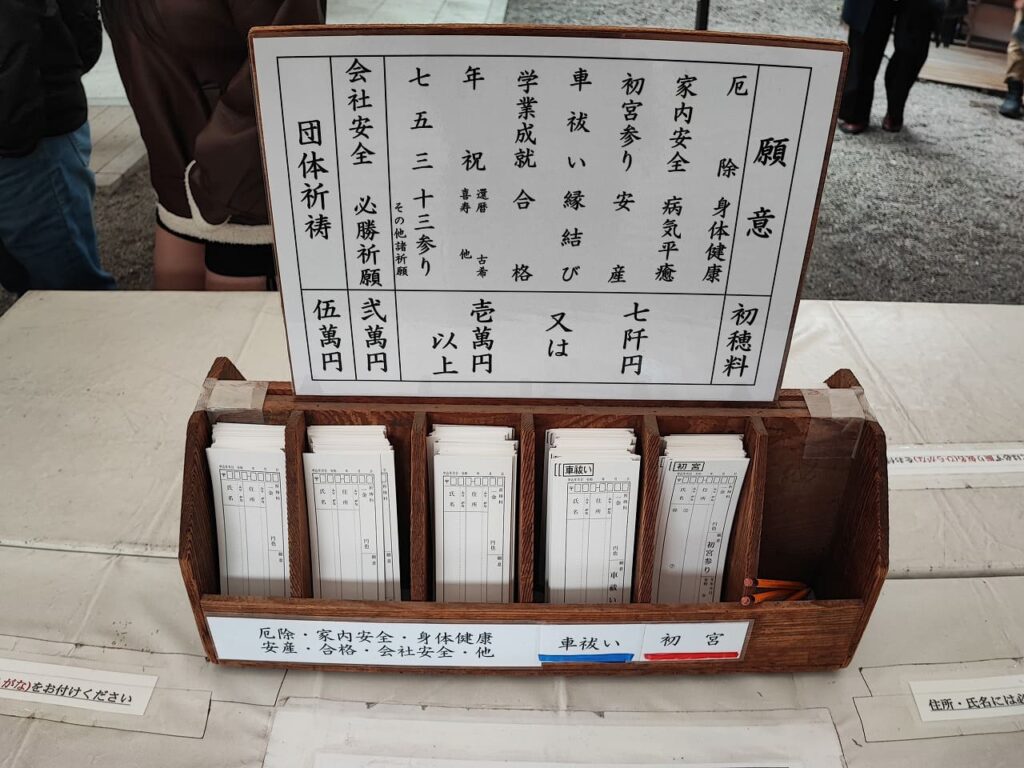 願意
初穂料
厄除 身体健康
家内安全 病気平癒
初宮参り 安産
車祓い 縁結び
学業成就 合格
年祝 還暦 古希 喜寿 他
七五三 十三参り
その他諸祈願
七阡円
又は
壱萬円
以上
会社安全 必勝祈願
弐萬円
団体祈祷
伍萬円
車祓い
住所
氏名
車祓い
初宮
住所
氏名
初宮参り
住所
氏名
住所
氏名
住所
氏名
厄除・家内安全・身体健康
安産・合格・会社安全・他
車祓い
初宮
がな)をお付けください
住所・氏名には必